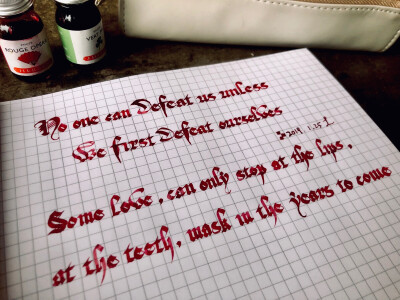 ROUGE OPERA
No one can Defeat us unless
We first Defeat ourselves
2019.1.25
Some love, can only stop at the lips,
at the teeth, wask in the years to come